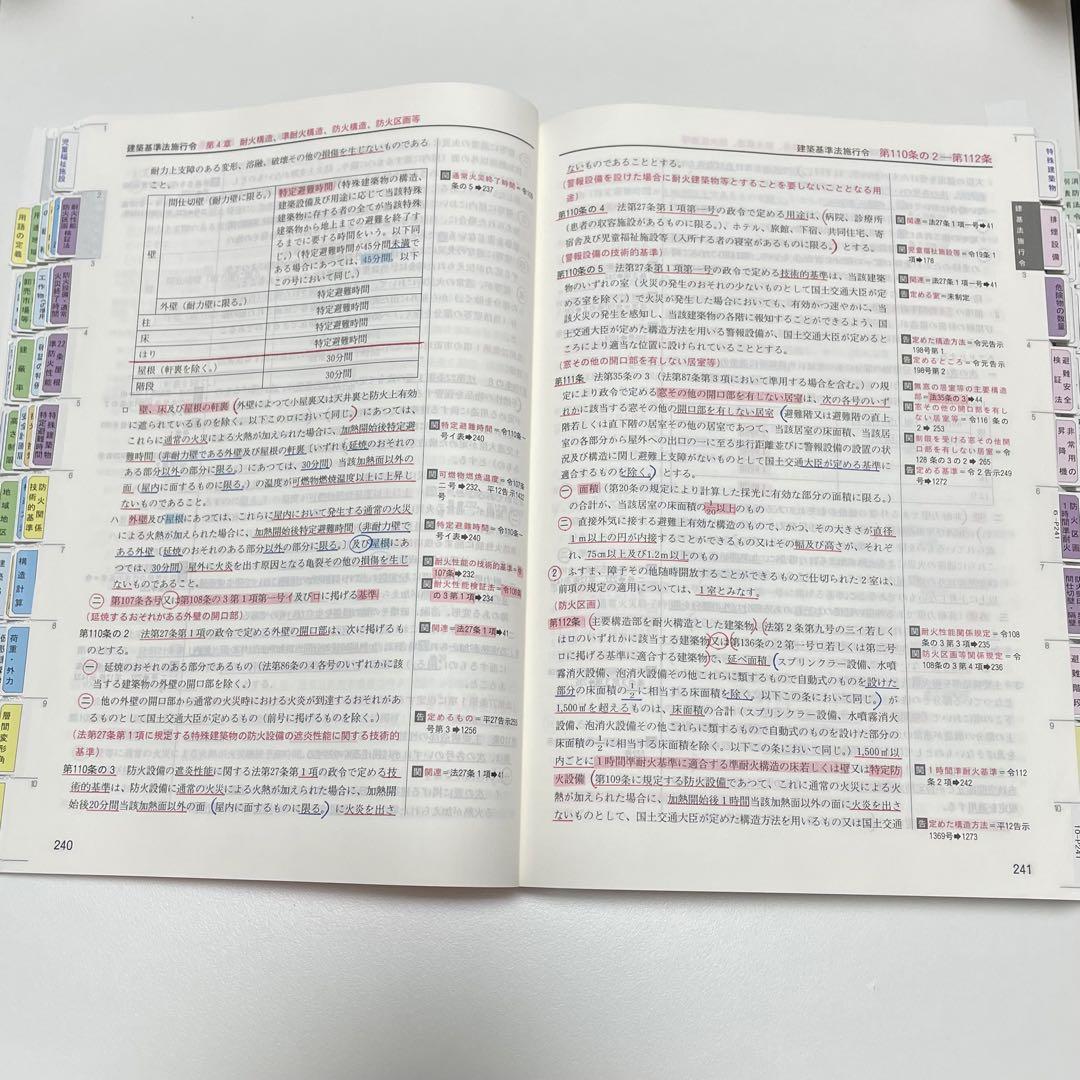 建築基準法施行令 第4章 耐火構造、準耐火構造、防火構造、防火区画等
耐力上支障のある変形、溶融、破壊その他の損傷を生じないものである
こと。
壁
間仕切壁（耐力壁に限る。）
特定避難時間（特殊建築物の構造、
建築設備及び用途に応じて当該特殊
建築物に存する者の全てが当該特殊
建築物から地上までの避難を終了す
るまでに要する時間をいう。以下同
じ。）（特定避難時間が45分間未満で
ある場合にあつては、45分間。以下
この号において同じ。）
外壁（耐力壁に限る。）
特定避難時間
柱
特定避難時間
床
特定避難時間
はり
特定避難時間
屋根（軒裏を除く。）
30分間
階段
30分間
ロ 壁、床及び屋根の軒裏（外壁によつて小屋裏又は天井裏と防火上有効
に遮られているものを除く。以下このロにおいて同じ。）にあつては、
これらに通常の火災による火熱が加えられた場合に、加熱開始後特定避
難時間（非耐力壁である外壁及び屋根の軒裏（いずれも延焼のおそれの
ある部分以外の部分に限る。）にあつては、30分間）当該加熱面以外の
面（屋内に面するものに限る。）の温度が可燃物燃焼温度以上に上昇し
ないものであること。
ハ 外壁及び屋根にあつては、これらに屋内において発生する通常の火災
による火熱が加えられた場合に、加熱開始後特定避難時間（非耐力壁で
ある外壁（延焼のおそれのある部分以外の部分に限る。）及び屋根にあ
つては、30分間）屋外に火炎を出す原因となる亀裂その他の損傷を生じ
ないものであること。
二 第107条各号又は第108条の3第1項第一号イ及びロに掲げる基準
（延焼するおそれがある外壁の開口部）
第110条の2 法第27条第1項の政令で定める外壁の開口部は、次に掲げるも
のとする。
一 延焼のおそれのある部分であるもの（法第86条の4各号のいずれかに該
当する建築物の外壁の開口部を除く。）
二 他の外壁の開口部から通常の火災時における火炎が到達するおそれがあ
るものとして国土交通大臣が定めるもの（前号に掲げるものを除く。）
（法第27条第1項に規定する特殊建築物の防火設備の遮炎性能に関する技術的
基準）
第110条の3 防火設備の遮炎性能に関する法第27条第1項の政令で定める技
術的基準は、防火設備に通常の火災による火熱が加えられた場合に、加熱開
始後20分間当該加熱面以外の面（屋内に面するものに限る。）に火炎を出さ
関 通常火災終了時間＝令109
条の5➡237
関 特定避難時間＝令110条一
号イ表➡240
関 可燃物燃焼温度＝令107条
二号➡232、平12告示1432
号
関 特定避難時間＝令110条一
号イ表➡240
関 耐火性能の技術的基準＝令
107条➡232
関 耐火性能検証法＝令108条
の3第1項➡234
関 関連＝法27条1項➡41
告 定めるもの＝平27告示255
号第3➡1256
関 関連＝法27条1項➡41
240
建築基準法施行令 第110条の2—第112条
ないものであることとする。
（警報設備を設けた場合に耐火建築物等とすることを要しないこととなる用
途）
第110条の4 法第27条第1項第一号の政令で定める用途は、（病院、診療所
（患者の収容施設があるものに限る。）、ホテル、旅館、下宿、共同住宅、寄
宿舎及び児童福祉施設等（入所する者の寝室があるものに限る。）とする。
（警報設備の技術的基準）
第110条の5 法第27条第1項第一号の政令で定める技術的基準は、当該建築
物のいずれの室（火災の発生のおそれの少ないものとして国土交通大臣が定
める室を除く。）で火災が発生した場合においても、有効かつ速やかに、当
該火災の発生を感知し、当該建築物の各階に報知することができるよう、国
土交通大臣が定めた構造方法を用いる警報設備が、国土交通大臣が定めると
ころにより適当な位置に設けられていることとする。
（窓その他の開口部を有しない居室等）
第111条 法第35条の3（法第87条第3項において準用する場合を含む。）の規
定により政令で定める窓その他の開口部を有しない居室は、次の各号のいず
れかに該当する窓その他の開口部を有しない居室（避難階又は避難階の直上
階若しくは直下階の居室その他の居室であつて、当該居室の床面積、当該居
室の各部分から屋外への出口の一に至る歩行距離並びに警報設備の設置の状
況及び構造に関し避難上支障がないものとして国土交通大臣が定める基準に
適合するものを除く。）とする。
一 面積（第20条の規定により計算した採光に有効な部分の面積に限る。）
の合計が、当該居室の床面積の1/20以上のもの
二 直接外気に接する避難上有効な構造のもので、かつ、その大きさが直径
1m以上の円が内接することができるもの又はその幅及び高さが、それぞ
れ、75cm以上及び1.2m以上のもの
2 ふすま、障子その他随時開放することができるもので仕切られた2室は、
前項の規定の適用については、1室とみなす。
（防火区画）
第112条 （主要構造部を耐火構造とした建築物）（法第2条第九号の三イ若しく
はロのいずれかに該当する建築物又は第136条の2第一号ロ若しくは第二号
ロに掲げる基準に適合する建築物で、延べ面積（スプリンクラー設備、水噴
霧消火設備、泡消火設備その他これらに類するもので自動式のものを設けた
部分の床面積の1/2に相当する床面積を除く。以下この条において同じ。）が
1,500㎡を超えるものは、床面積の合計（スプリンクラー設備、水噴霧消火
設備、泡消火設備その他これらに類するもので自動式のものを設けた部分の
床面積の1/2に相当する床面積を除く。以下この条において同じ。）1,500㎡以
内ごとに1時間準耐火基準に適合する準耐火構造の床若しくは壁又は特定防
火設備（第109条に規定する防火設備であつて、これに通常の火災による火
熱が加えられた場合に、加熱開始後1時間当該加熱面以外の面に火炎を出さ
ないものとして、国土交通大臣が定めた構造方法を用いるもの又は国土交通
関 関連＝法27条1項一号➡41
関 児童福祉施設等＝令19条1
項➡178
関 関連＝法27条1項一号➡41
告 定める室＝未制定
告 定めた構造方法＝令元告示
198号第1
告 定めるところ＝令元告示
198号第2
関 無窓の居室等の主要構造
部＝法35条の3➡44
関 窓その他の開口部を有し
ない居室等＝令116条の
2➡253
関 制限を受ける窓その他開
口部を有しない居室＝令
128条の3の2➡265
告 定める基準＝令2告示249
号➡1272
関 耐火性能関係規定＝令108
条の3第3項➡235
関 防火区画等関係規定＝令
108条の3第4項➡236
関 1時間準耐火基準＝令112
条2項➡242
告 定めた構造方法＝平12告示
1369号➡1273
241
児童福祉施設
用語の定義
建蔽率
地域地区
防火関係
技術的基準
構造計算
荷重・外力
層間変形角
特殊建築物
建基法施行令
排煙設備
危険物の数量